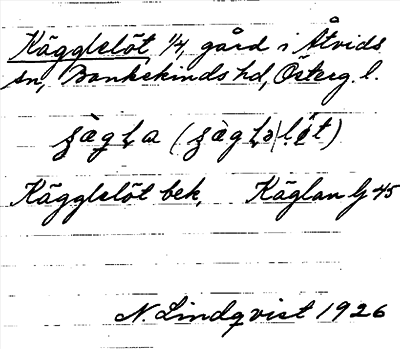 Käggleöt 1/4, gård i Åtvids
sn, Bankekinds hd, Österg. l.
Käggleöt bek. Käglan G 45
N. Lindqvist 1926